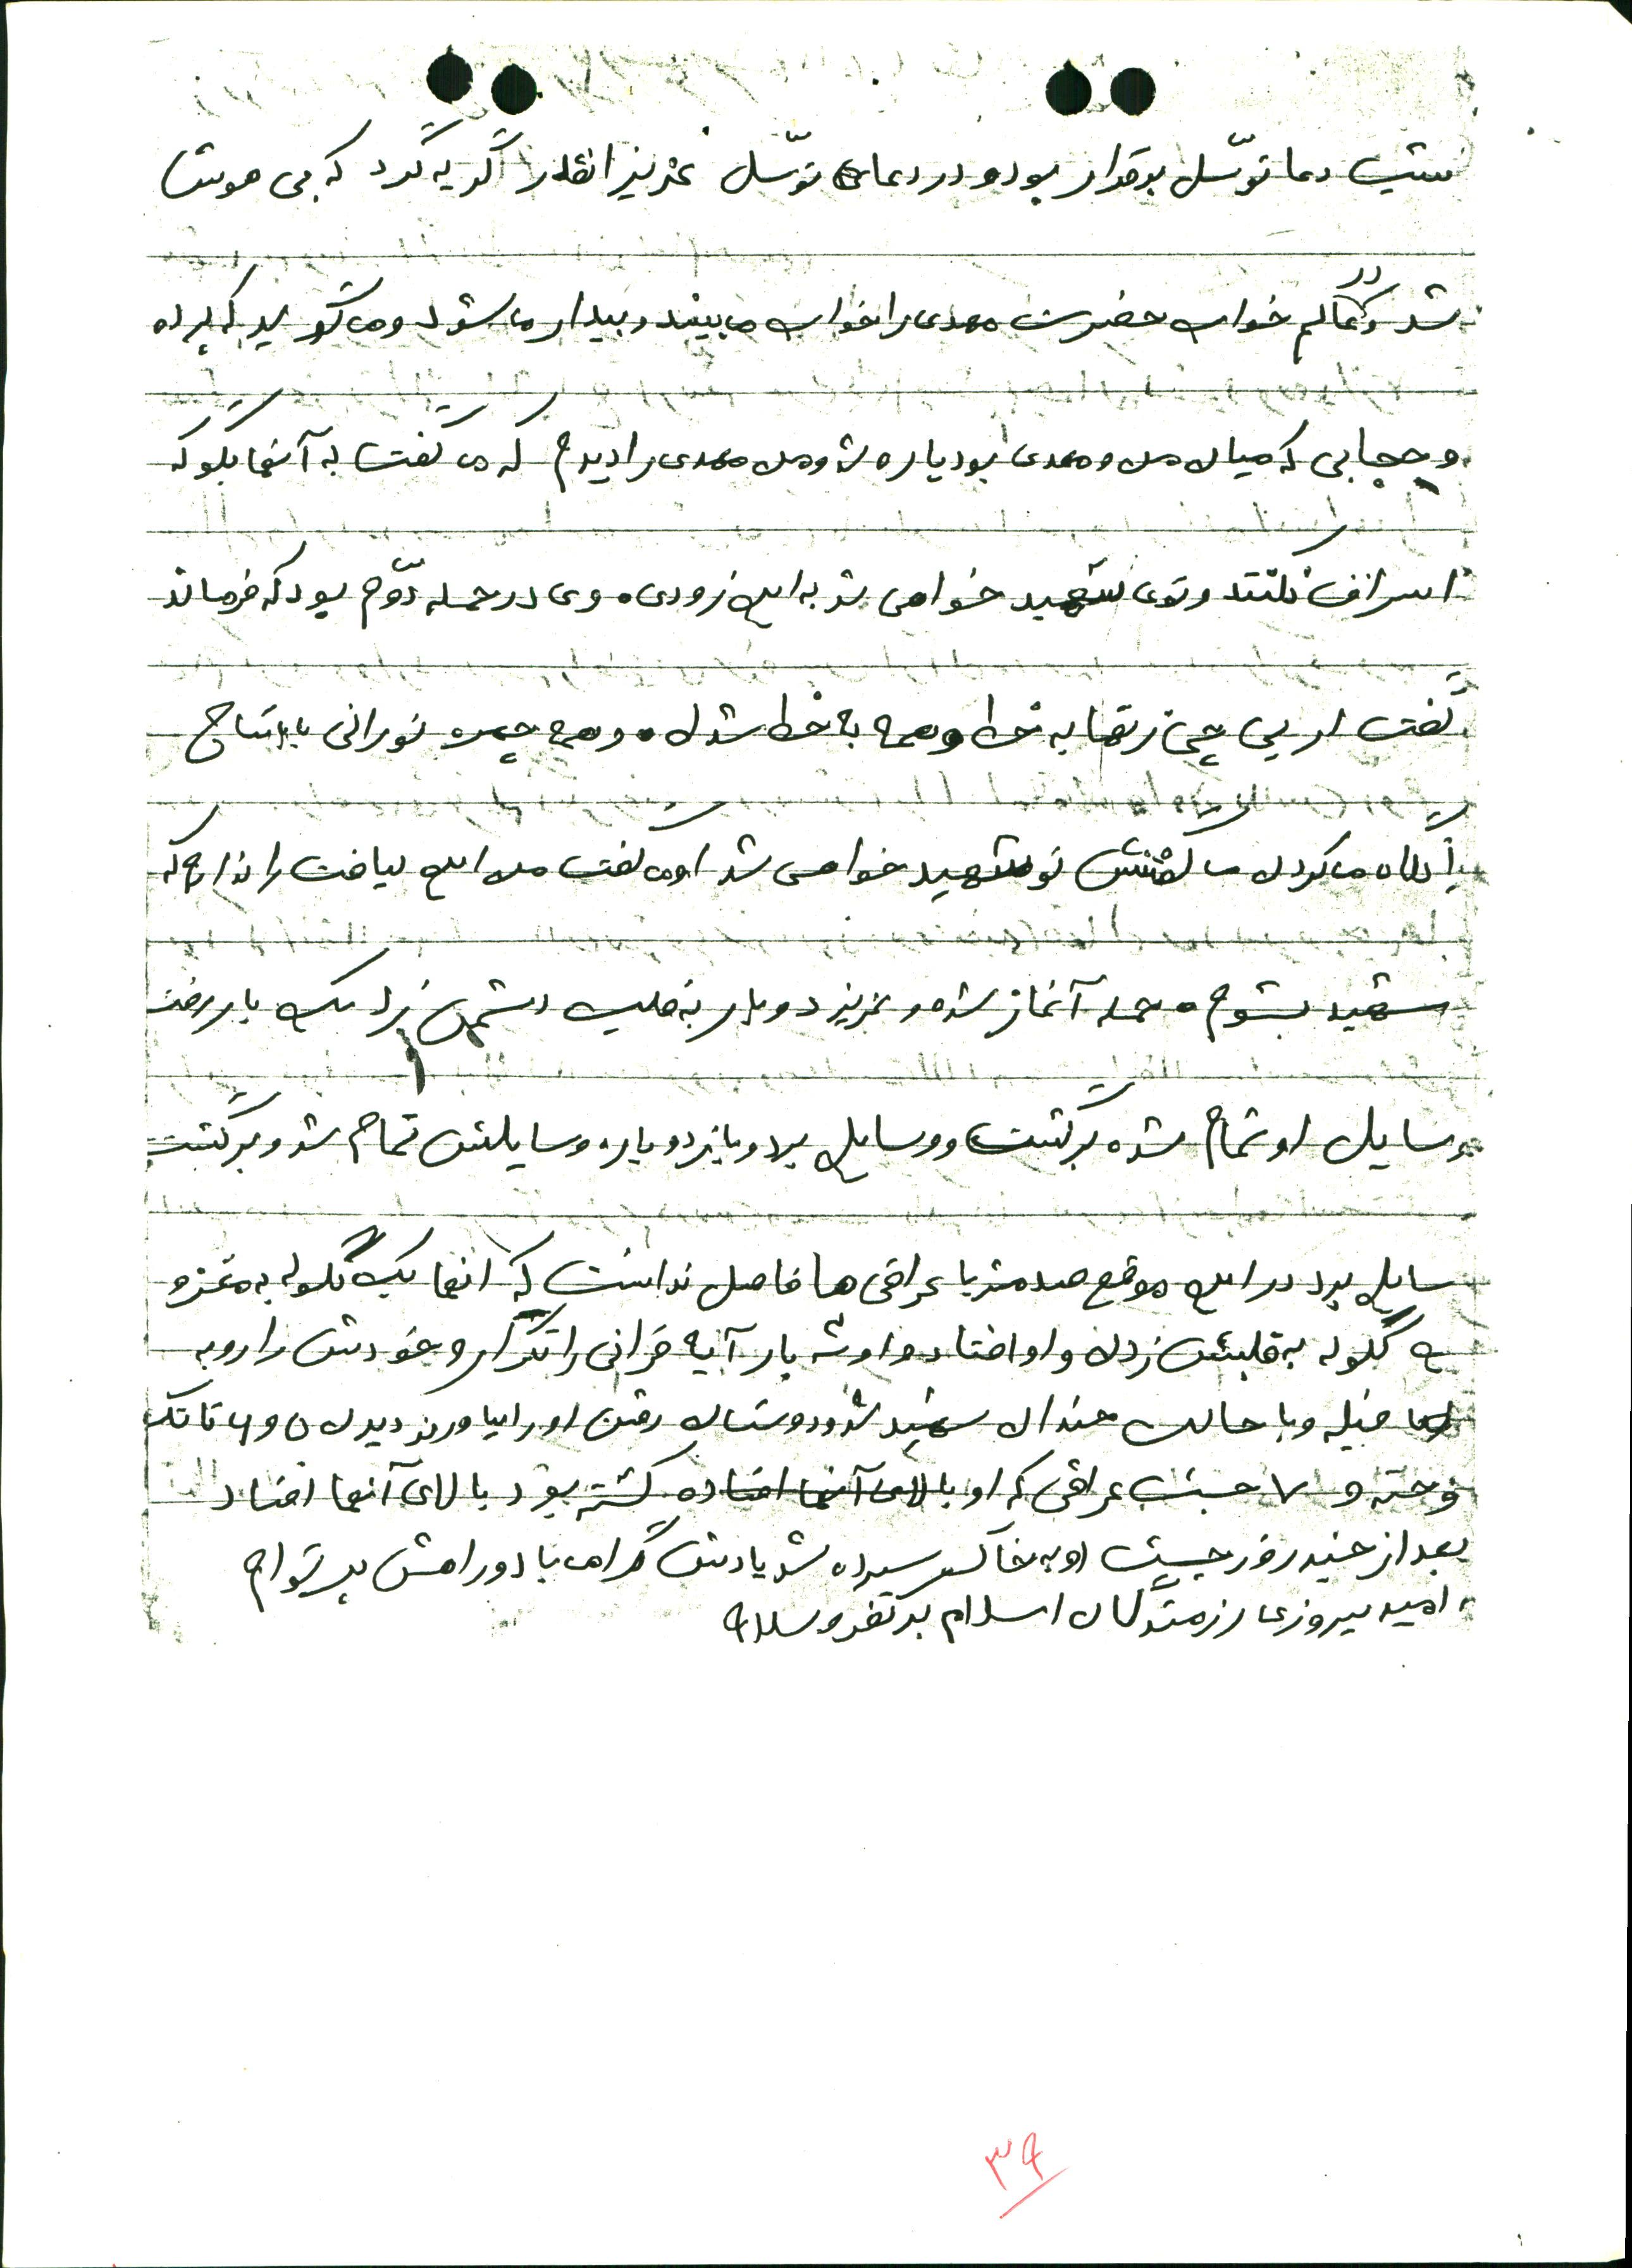 شب دعا توسّل برقرار بود و در دعای توسّل عزیز انقدر گریه کرد که بی هوش
شد و در عالم خواب حضرت مهدی را خواب می بیند و بیدار می شود و می گوید که پرده
و حجابی که میان من و مهدی بود پاره شد و من مهدی را دیدم که می گفت به آنها بگو که
اسراف نکنند و توی شهید خواهی شد به این زودی. وی در حمله دوّم بود که فرمانده
گفت ار پی جی زنها به خط و همه به خط شدن. و همه چهره نورانی
نگاه می کردن می گفتنش تو شهید خواهی شد او می گفت من این لیاقت را ندارم که
شهید بشوم. حمله آغاز شده و عزیز دوبار به قلب دشمن زد یک بار رفت
وسایل او تمام شده برگشت و وسایل برد و باز دوباره وسایلش تمام شد و برگشت
سایل برد در این موقع صد متر با عراقی ها فاصل نداشت که انها یک گلوله به مغز و
گلوله به قلبش زدن و او افتاد و او سه بار آیه قرانی را تکرار و خودش را رو به
قبله و با حالت خندان شهید شد و دوستان رفتن او را بیاورند دیدن ۵ و ۶ تا تانک
سوخته و ۷ جسد عراقی که او بالای آنها افتاده کشته بود بالای آنها افتاد
بعد از چند روز جسد او به خاک سپرده شد یادش گرامی باد و راهش پر توام
امید پیروزی رزمندگان اسلام بر کفر و سلام
۳۶